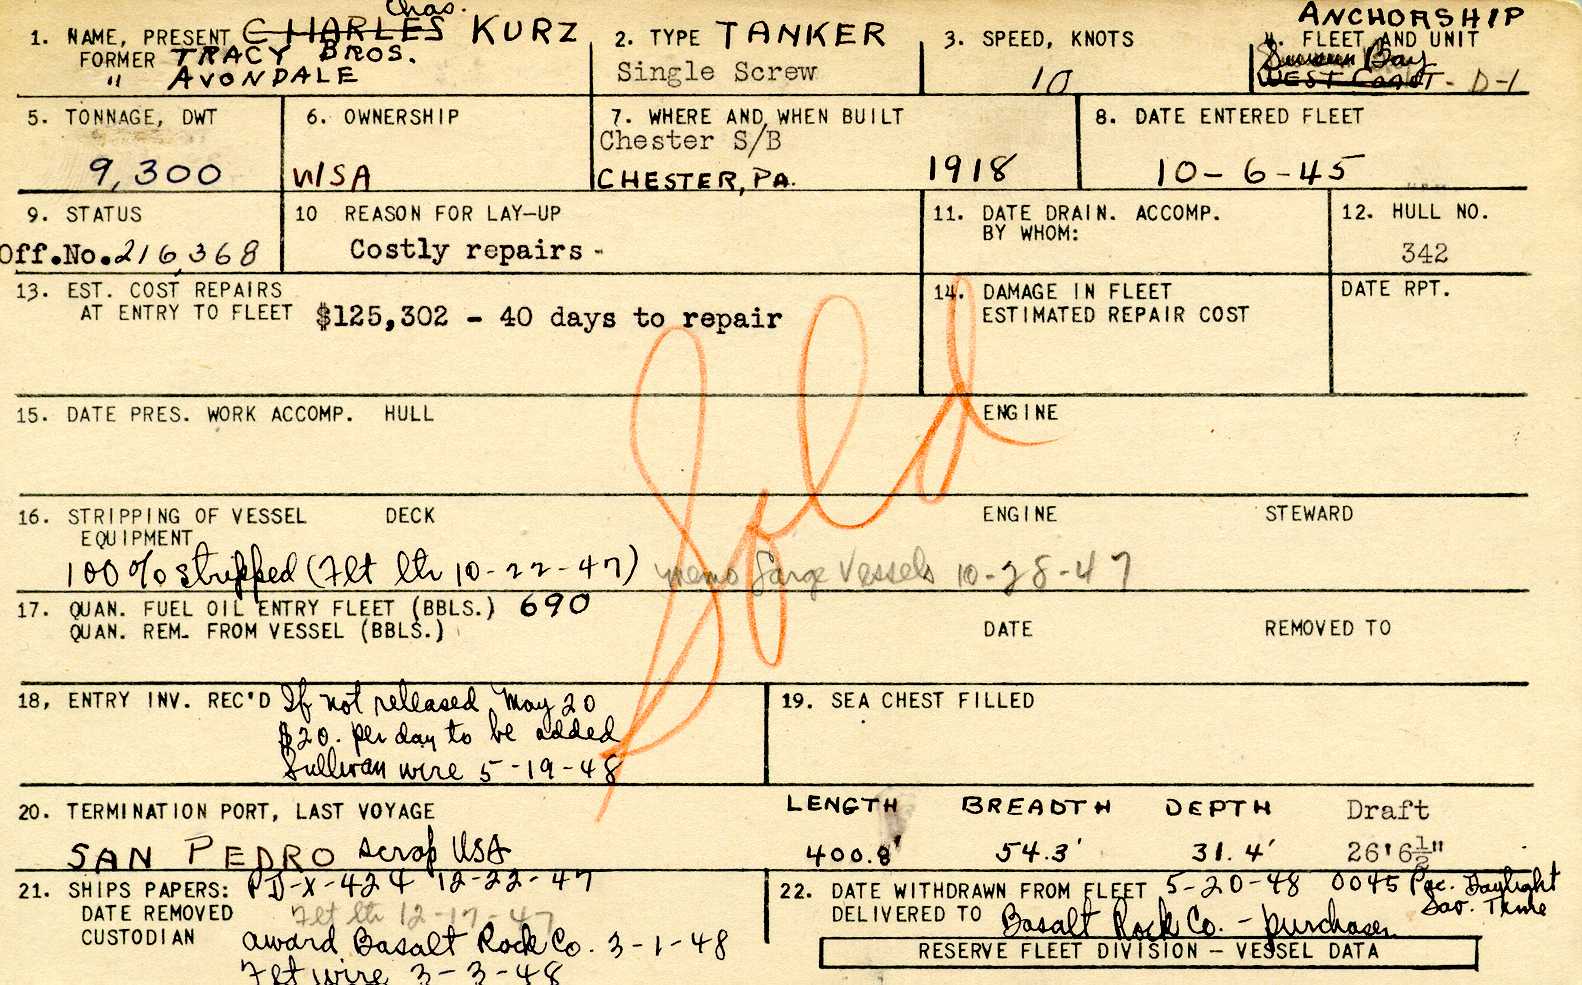 Chas.
1. NAME, PRESENT CHARLES KURZ
FORMER TRACY BROS.
" AVONDALE
2. TYPE TANKER
Single Screw
3. SPEED, KNOTS
10
ANCHORSHIP
4. FLEET AND UNIT
Suisun Bay
WEST COAST - D-1
5. TONNAGE, DWT
9,300
6. OWNERSHIP
WSA
7. WHERE AND WHEN BUILT
Chester S/B
CHESTER, PA. 1918
8. DATE ENTERED FLEET
10-6-45
9. STATUS
Off.No. 216,368
10 REASON FOR LAY-UP
Costly repairs -
11. DATE DRAIN. ACCOMP.
BY WHOM:
12. HULL NO.
342
13. EST. COST REPAIRS
AT ENTRY TO FLEET $125,302 - 40 days to repair
14. DAMAGE IN FLEET
ESTIMATED REPAIR COST
DATE RPT.
Sold
15. DATE PRES. WORK ACCOMP. HULL ENGINE
16. STRIPPING OF VESSEL DECK ENGINE STEWARD
EQUIPMENT
100% stripped (Flt ltr 10-22-47) memo Large Vessels 10-28-47
17. QUAN. FUEL OIL ENTRY FLEET (BBLS.) 690
QUAN. REM. FROM VESSEL (BBLS.) DATE REMOVED TO
18, ENTRY INV. REC'D If not released May 20
$20. per day to be added
Sullivan wire 5-19-48
19. SEA CHEST FILLED
20. TERMINATION PORT, LAST VOYAGE
SAN PEDRO scrap USA
LENGTH BREADTH DEPTH Draft
400.8' 54.3' 31.4' 26'6½"
21. SHIPS PAPERS: PD-X-424 12-22-47
DATE REMOVED Flt ltr 12-17-47
CUSTODIAN award Basalt Rock Co. 3-1-48
Flt wire 3-3-48
22. DATE WITHDRAWN FROM FLEET 5-20-48 0045 Pac. Daylight
Sav. Time
DELIVERED TO Basalt Rock Co. - purchaser
RESERVE FLEET DIVISION - VESSEL DATA